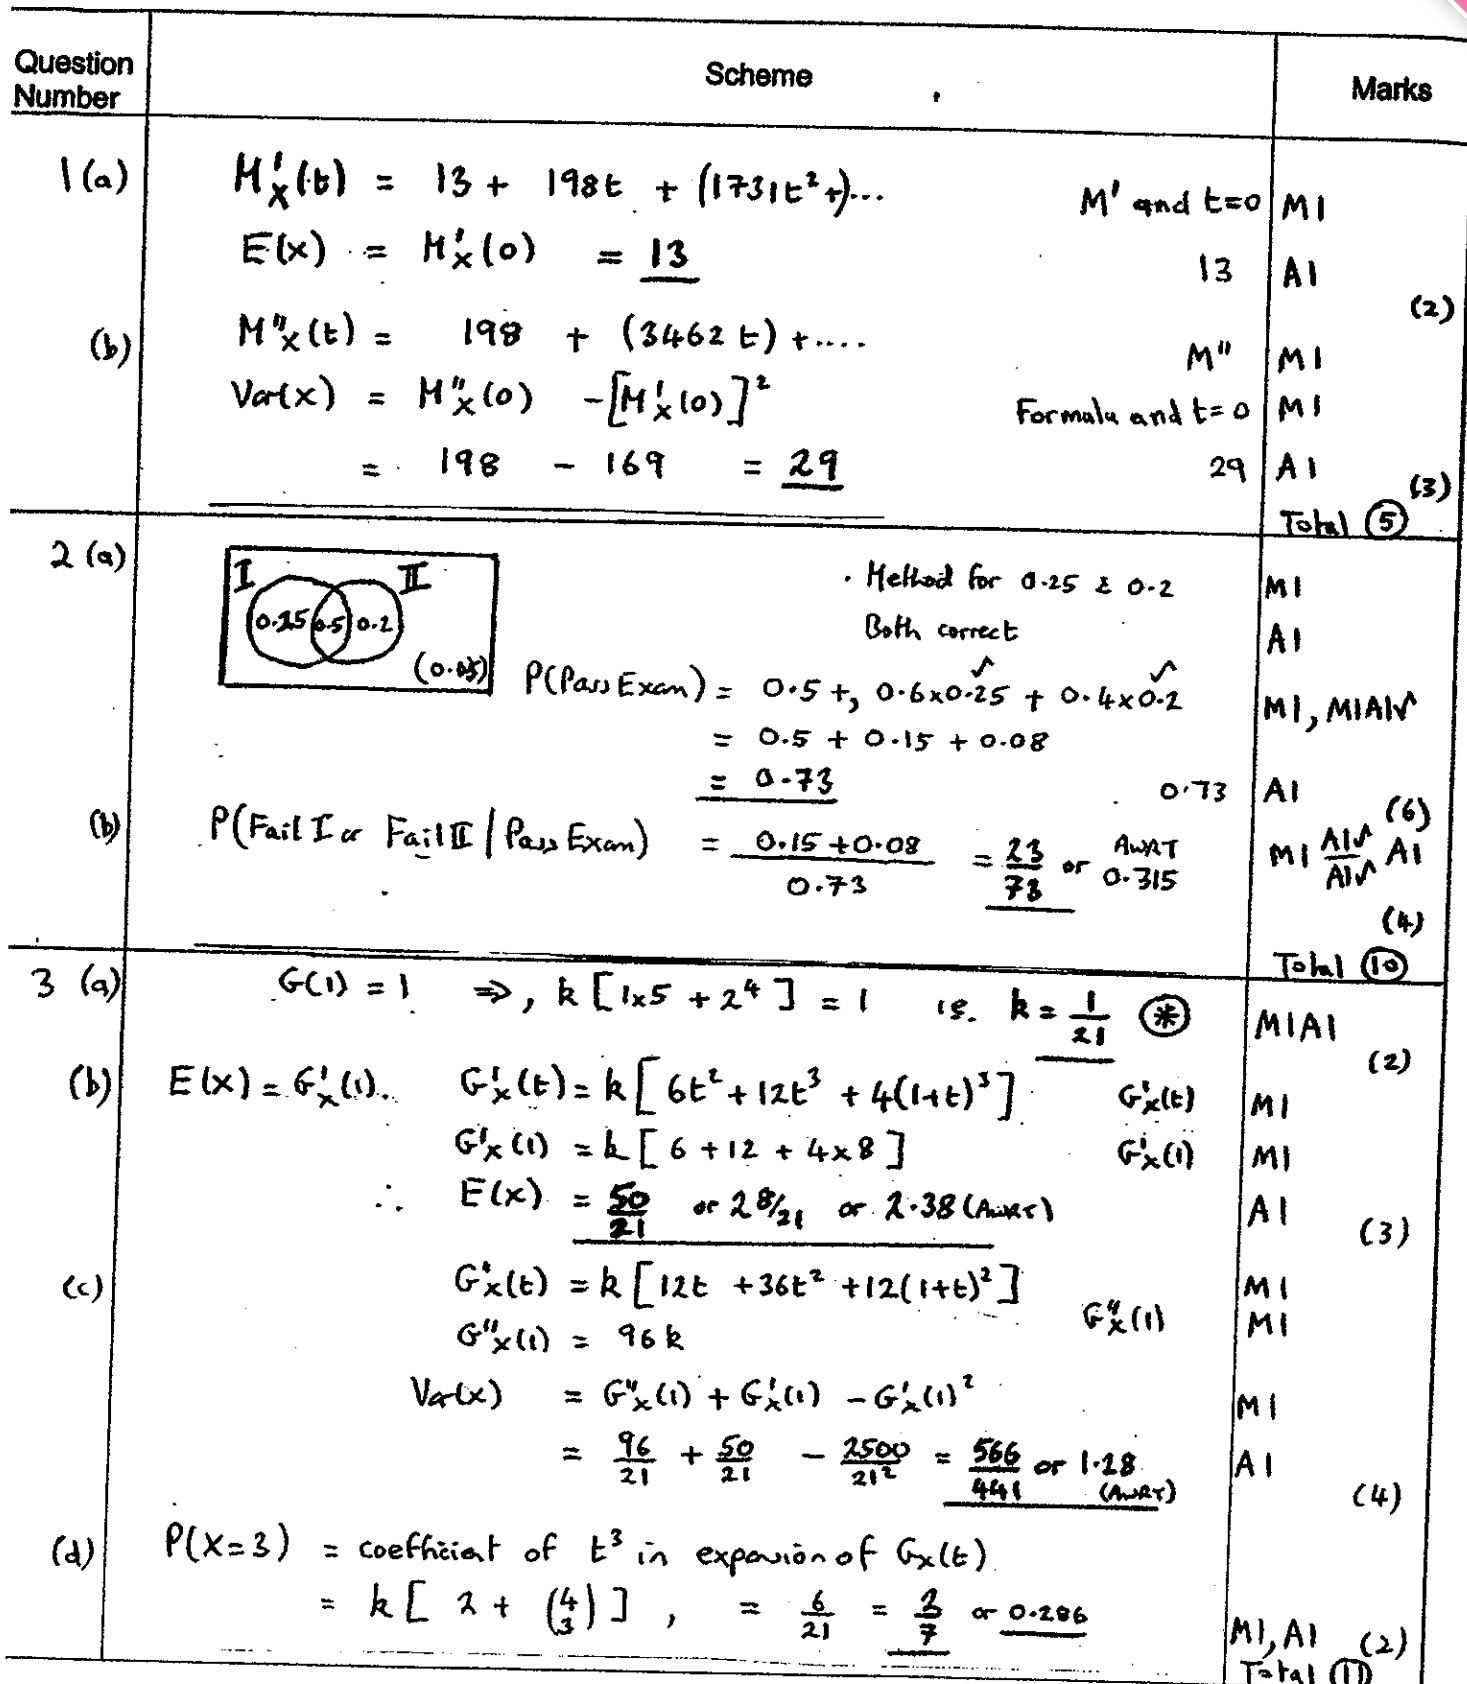 Question Number Scheme Marks
1 (a) M'ₓ(t) = 13 + 198t + (1731t² +)... M' and t=0 M1
E(x) = M'ₓ(0) = 13 13 A1
(2)
(b) M"ₓ(t) = 198 + (3462 t) + .... M" M1
Var(x) = M"ₓ(0) - [M'ₓ(0)]² Formula and t=0 M1
= 198 - 169 = 29 29 A1
(3)
Total (5)
2 (a) I II Method for 0.25 & 0.2 M1
0.25 0.5 0.2 Both correct A1
(0.05) P(Pass Exam) = 0.5 +, 0.6x0.25 + 0.4x0.2 M1, M1A1√
= 0.5 + 0.15 + 0.08
= 0.73 0.73 A1
(6)
(b) P(Fail I or Fail II | Pass Exam) = (0.15 + 0.08)/0.73 = 23/73 or AWRT 0.315 M1 A1√/A1√ A1
(4)
Total (10)
3 (a) G(1) = 1 ⇒, k [1x5 + 2⁴] = 1 i.e. k = 1/21 (*) M1A1
(2)
(b) E(x) = G'ₓ(1). G'ₓ(t) = k [6t² + 12t³ + 4(1+t)³] G'ₓ(t) M1
G'ₓ(1) = k [6 + 12 + 4 x 8] G'ₓ(1) M1
∴ E(x) = 50/21 or 2 8/21 or 2.38 (AWRT) A1
(3)
(c) G"ₓ(t) = k [12t + 36t² + 12(1+t)²] M1
G"ₓ(1) = 96k G"ₓ(1) M1
Var(x) = G"ₓ(1) + G'ₓ(1) - G'ₓ(1)² M1
= 96/21 + 50/21 - 2500/21² = 566/441 or 1.28 (AWRT) A1
(4)
(d) P(X=3) = coefficient of t³ in expansion of Gₓ(t)
= k [2 + (4 3)], = 6/21 = 2/7 or 0.286 M1, A1 (2)
Total (11)